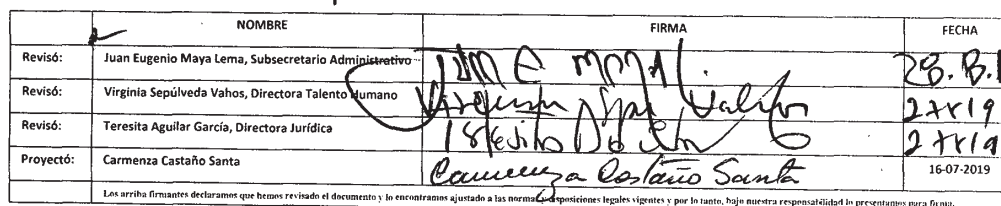 NOMBRE FIRMA FECHA
Revisó: Juan Eugenio Maya Lema, Subsecretario Administrativo
Revisó: Virginia Sepúlveda Vahos, Directora Talento Humano
Revisó: Teresita Aguilar García, Directora Jurídica
Proyectó: Carmenza Castaño Santa Carmenza Castaño Santa 16-07-2019
Los arriba firmantes declaramos que hemos revisado el documento y lo encontramos ajustado a las normas y disposiciones legales vigentes y por lo tanto, bajo nuestra responsabilidad lo presentamos para firma.